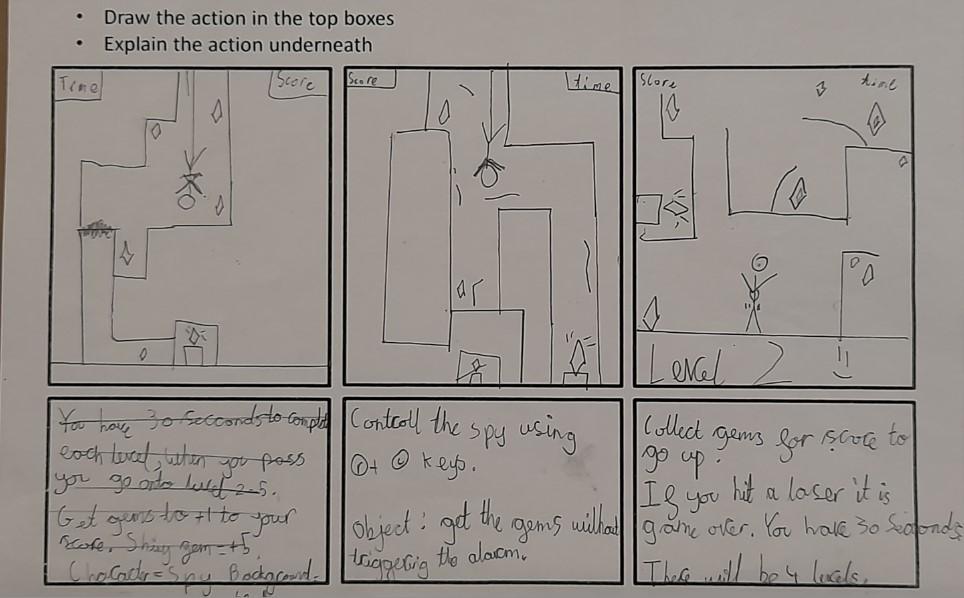 • Draw the action in the top boxes
• Explain the action underneath
Time
Score
Score
time
Score
time
Level 2
You have 30 secconds to complet
each level, when you pass
you go onto level 2-5.
Get gems to +1 to your
score. Shiny gem = +5.
Character = Spy Background.
Controll the spy using
keys.
Object: get the gems without
triggering the alarm.
Collect gems for score to
go up.
If you hit a laser it is
game over. You have 30 Seconds
There will be 4 levels.